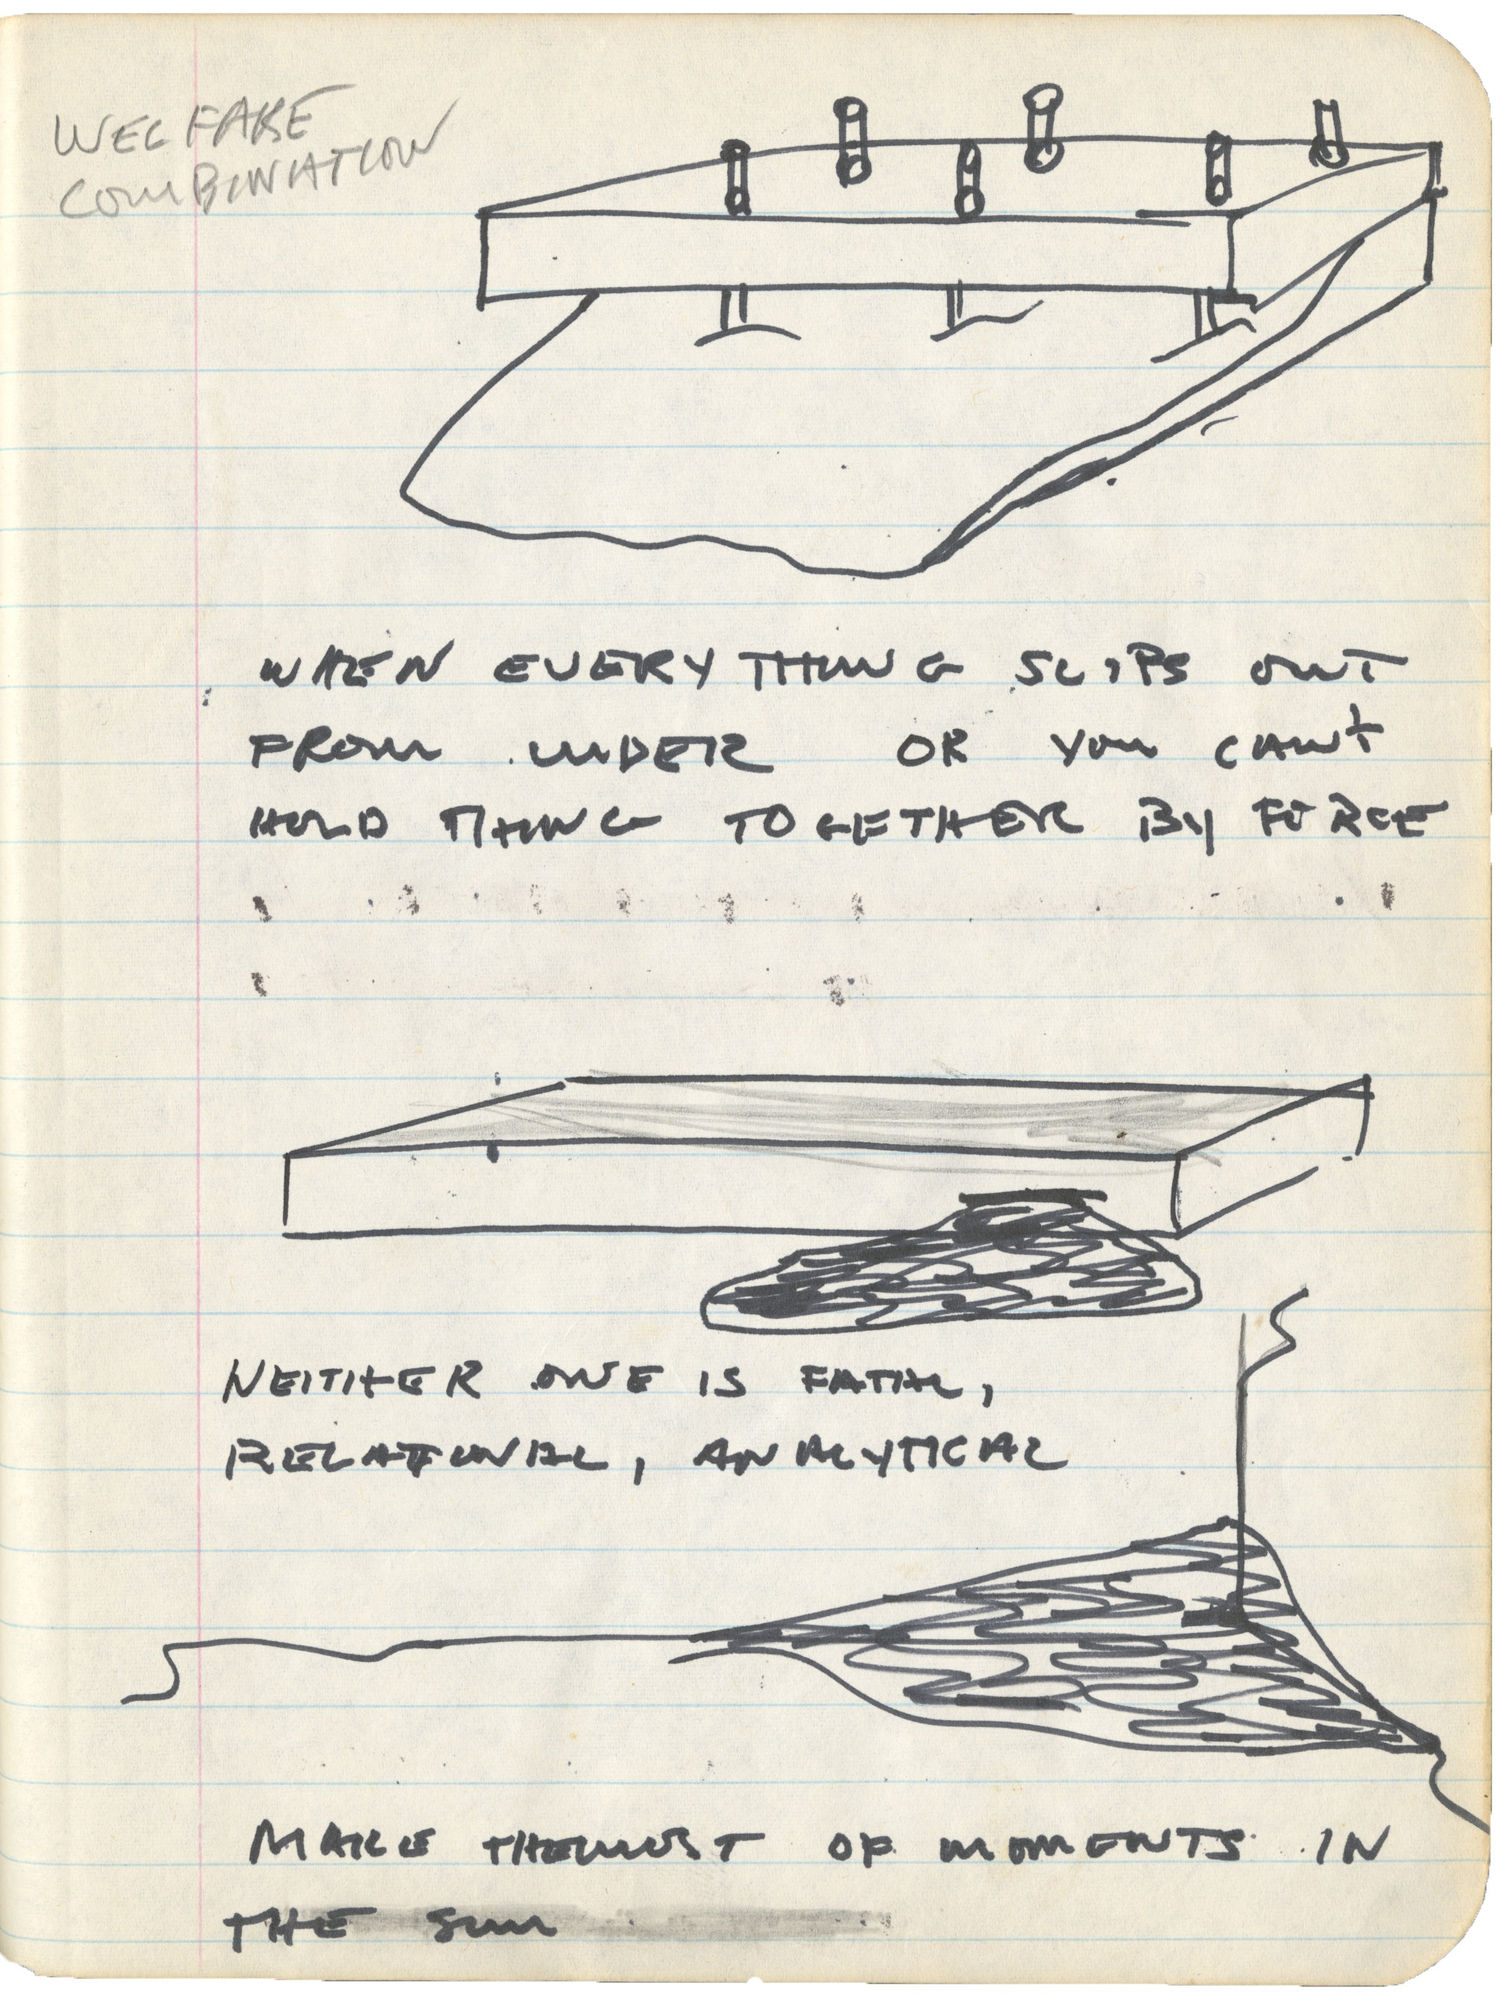 WELFARE
COMBINATION
WHEN EVERYTHING SLIPS OUT
FROM UNDER OR YOU CAN'T
HOLD THING TOGETHER BY FORCE
NEITHER ONE IS FATAL,
RELATIONAL, ANALYTICAL
MAKE THEMOST OF MOMENTS IN
THE SUN